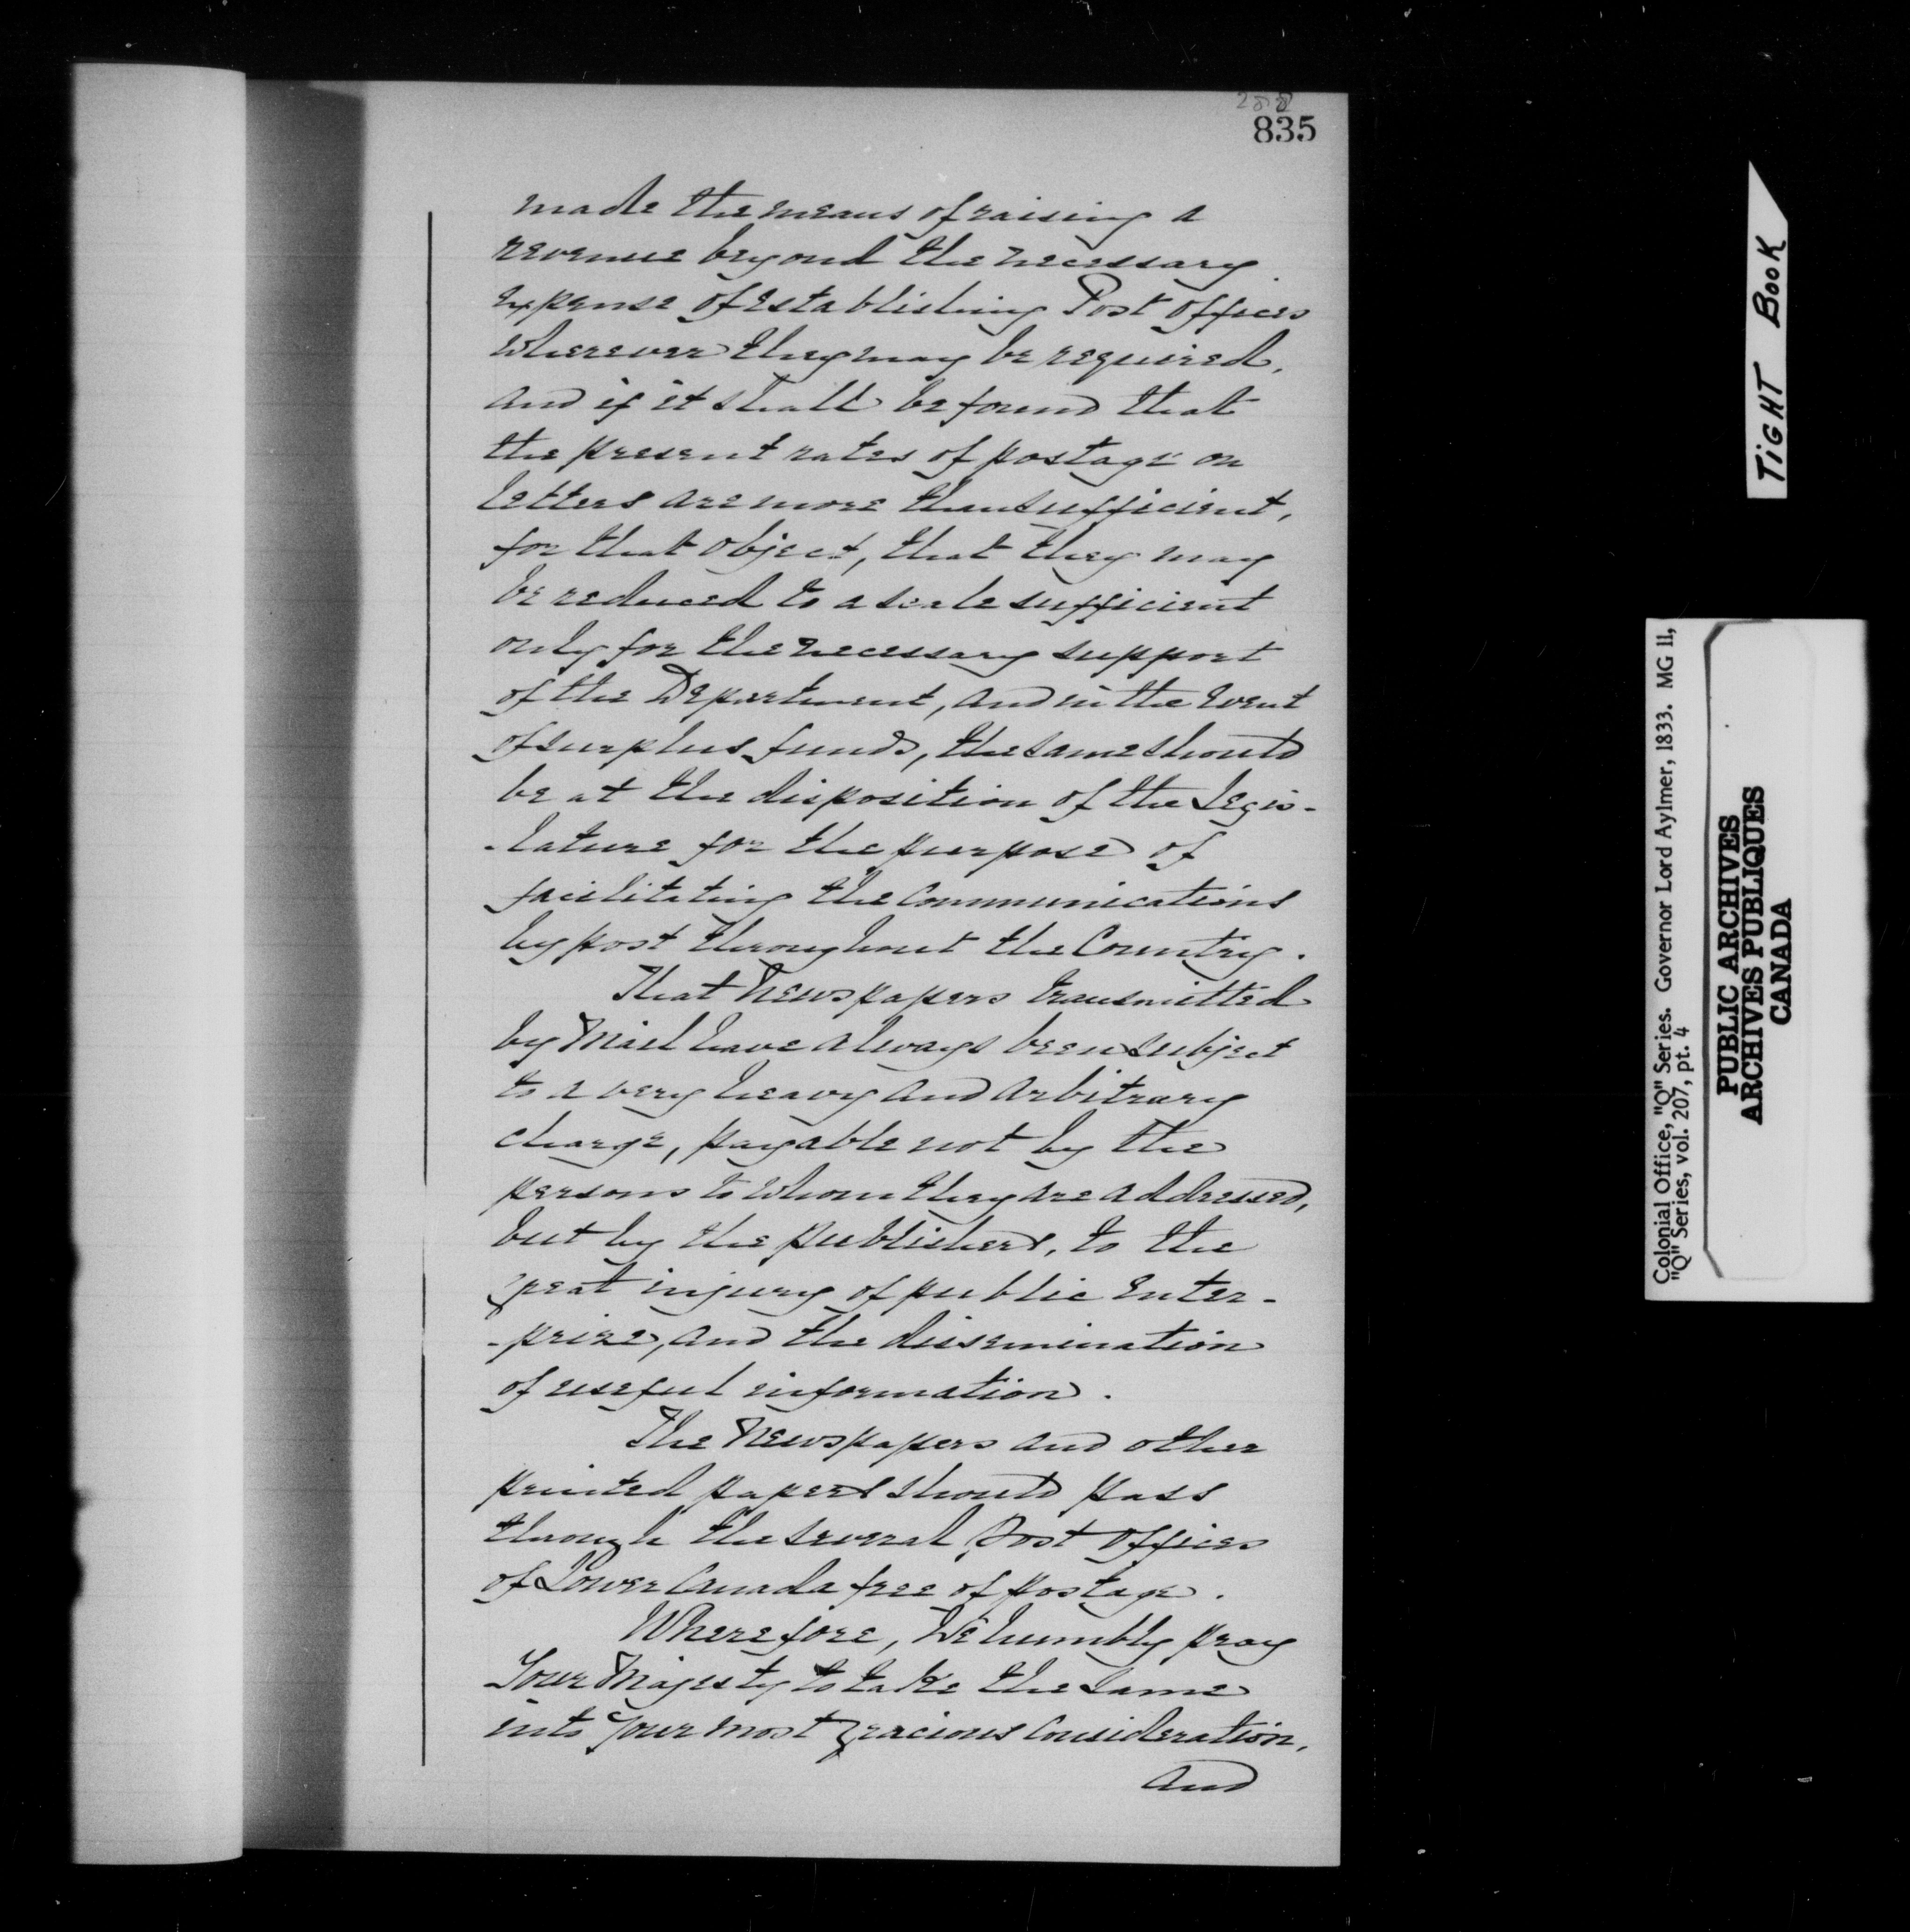 835
made the means of raising a
revenue beyond the necessary
expense of establishing Post offices
wherever they may be required,
and if it shall be found that
the present rates of postage on
letters are more than sufficient,
for that object, that they may
be reduced to a scale sufficient
only for the necessary support
of the Department, and in the event
of surplus funds, the same should
be at the disposition of the Legis-
-lature for the purpose of
facilitating the Communications
by post throughout the Country.
That Newspapers transmitted
by Mail have always been subject
to a very heavy and arbitrary
charge, payable not by the
persons to whom they are addressed,
but by the publishers, to the
great injury of public Enter-
-prize, and the dissemination
of useful information.
The Newspapers and other
printed papers should pass
through the several Post offices
of Lower Canada free of postage.
Wherefore, We humbly pray
Your Majesty to take the same
into Your most gracious Consideration,
and
TIGHT BOOK
Colonial Office, "Q" Series. Governor Lord Aylmer, 1833. MG 11,
"Q" Series, vol. 207, pt. 4
PUBLIC ARCHIVES
ARCHIVES PUBLIQUES
CANADA